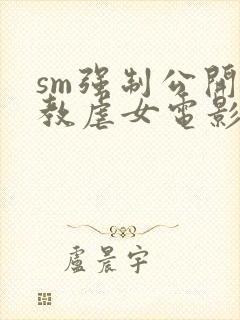 sm强制公開
教虐女電影
盧晨宇